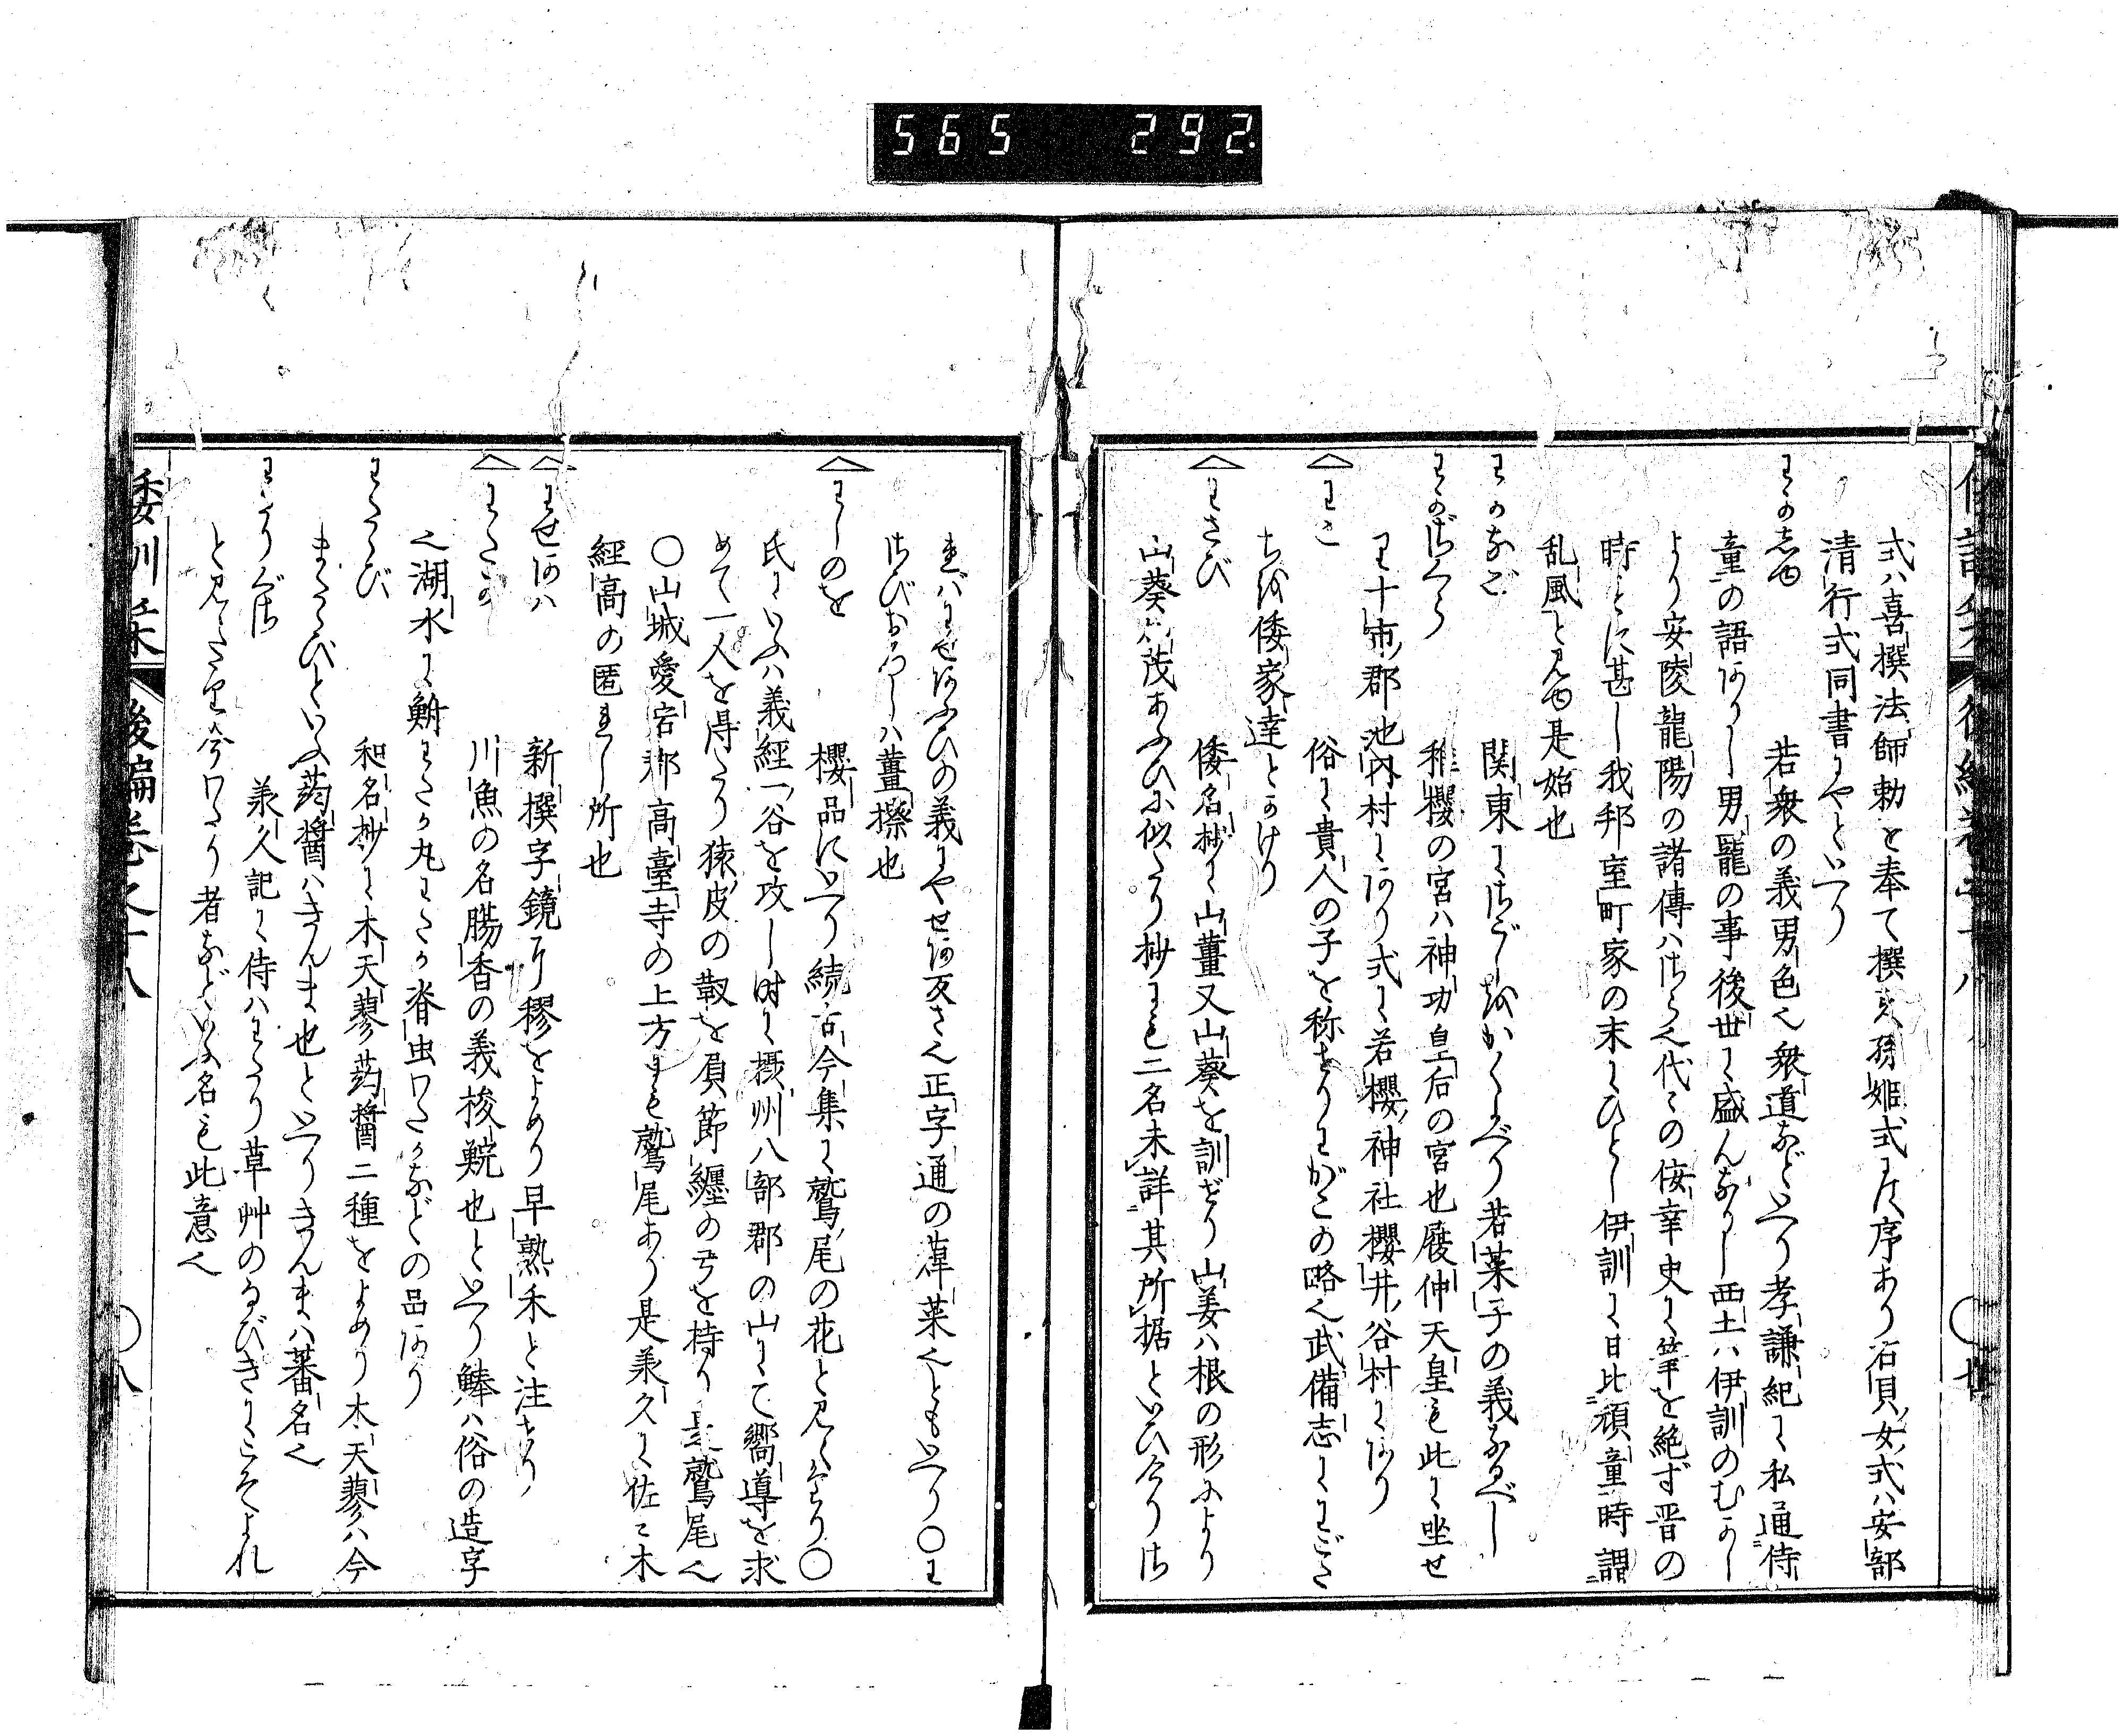 565 292
式ハ喜撰法師勅を奉て撰又孫姫式に序あり石見女式ハ安部
清行式同書にやといへり
わかしゆ 若衆の義男色也衆道などいへり孝謙紀に私通侍
童の語ありし男寵の事後世に盛んなりし西土ハ伊訓のむかし
より安陵龍陽の諸傳ハさら也代々の佞幸史に筆を絶ず晋の
時ことに甚し我邦室町家の末にひとし伊訓に日比頑童時謂
乱風と見ゆ是始也
わかなご 関東にさごしをかくよべり若菜子の義なるべし
わかざくら 稚櫻の宮ハ神功皇后の宮也履仲天皇も此に坐せ
り十市郡池内村にあり式に若櫻神社櫻井谷村にあり
わこ 俗に貴人の子を称せりわがこの略也武備志にわごた
ちを倭家達とかけり
わさび 倭名抄に山薑又山葵を訓ぜり山姜ハ根の形により
山葵ハ茂あふひに似たり抄にも二名未詳其所據といひ今りさ
ればわせあふひの義にやせあ反さ也正字通の葏菜也ともいへり〇わ
さびおろしハ薑擦也
わしのを 櫻品にいへり続古今集に鷲尾の花と見えたり〇
氏にいふハ義經一谷を攻し時に摂州八部郡の山にて嚮導を求
めて一人を得たり猿皮の靫を負節纏の弓を持り是鷲尾也
〇山城愛宕郡高臺寺の上方にも鷲尾あり是承久に佐々木
經高の匿れし所也
わせあは 新撰字鏡に穋をよめり早熟禾と注せり
わたか 川魚の名腸香の義梭鯇也といへり鰊ハ俗の造字
也湖水に鮒わたか丸わたか脊虫わたかなどの品あり
わたたび 和名抄に木天蓼蒟醬二種をよめり木天蓼ハ今
またたびといふ蒟醬ハきんま也といへりきんまハ蕃名也
わたりぐさ 承久記に侍ハわたり草艸のなびきにこそよれ
と見えたり今わたり者などいふ名も此意也
倭訓栞 後編巻之十八